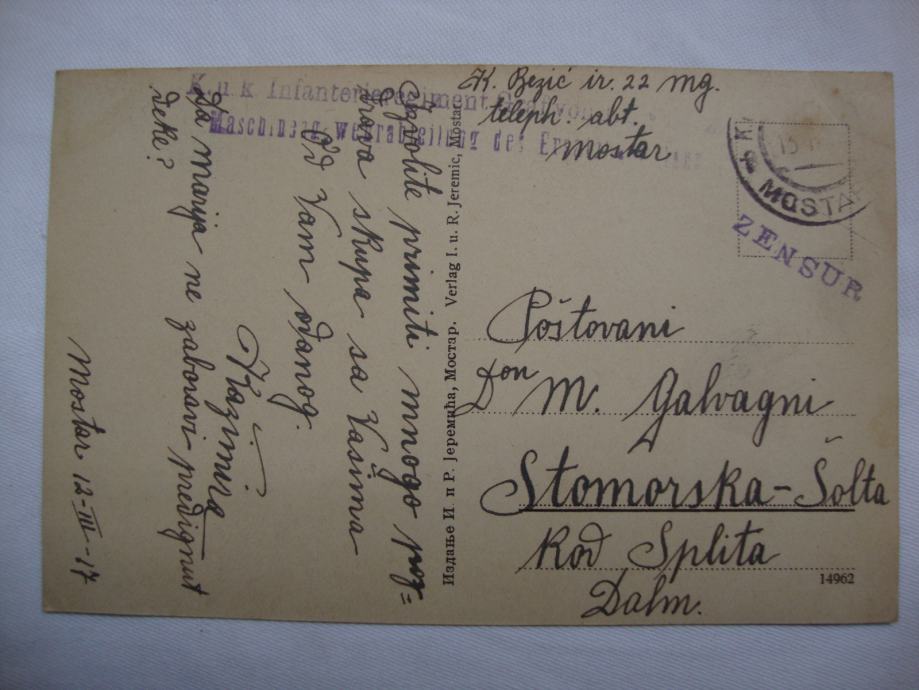 K. Bezić ir. 22 mg.
teleph. abt.
Mostar
K. u. k. Infanterieregiment Graf von
Maschinengewehrabteilung des
MOSTAR
ZENSUR
Izvolite primiti mnogo poz=
drava skupa sa Vašima
od Vam odanog.
Kazimira
Da Marija ne zaboravi predignut
deke?
Mostar 12-III-17
Издање И. и Р. Јеремића, Мостар. Verlag I. u. R. Jeremic, Mostar
Poštovani
Don M. Galvagni
Stomorska-Šolta
kod Splita
Dalm.
14962